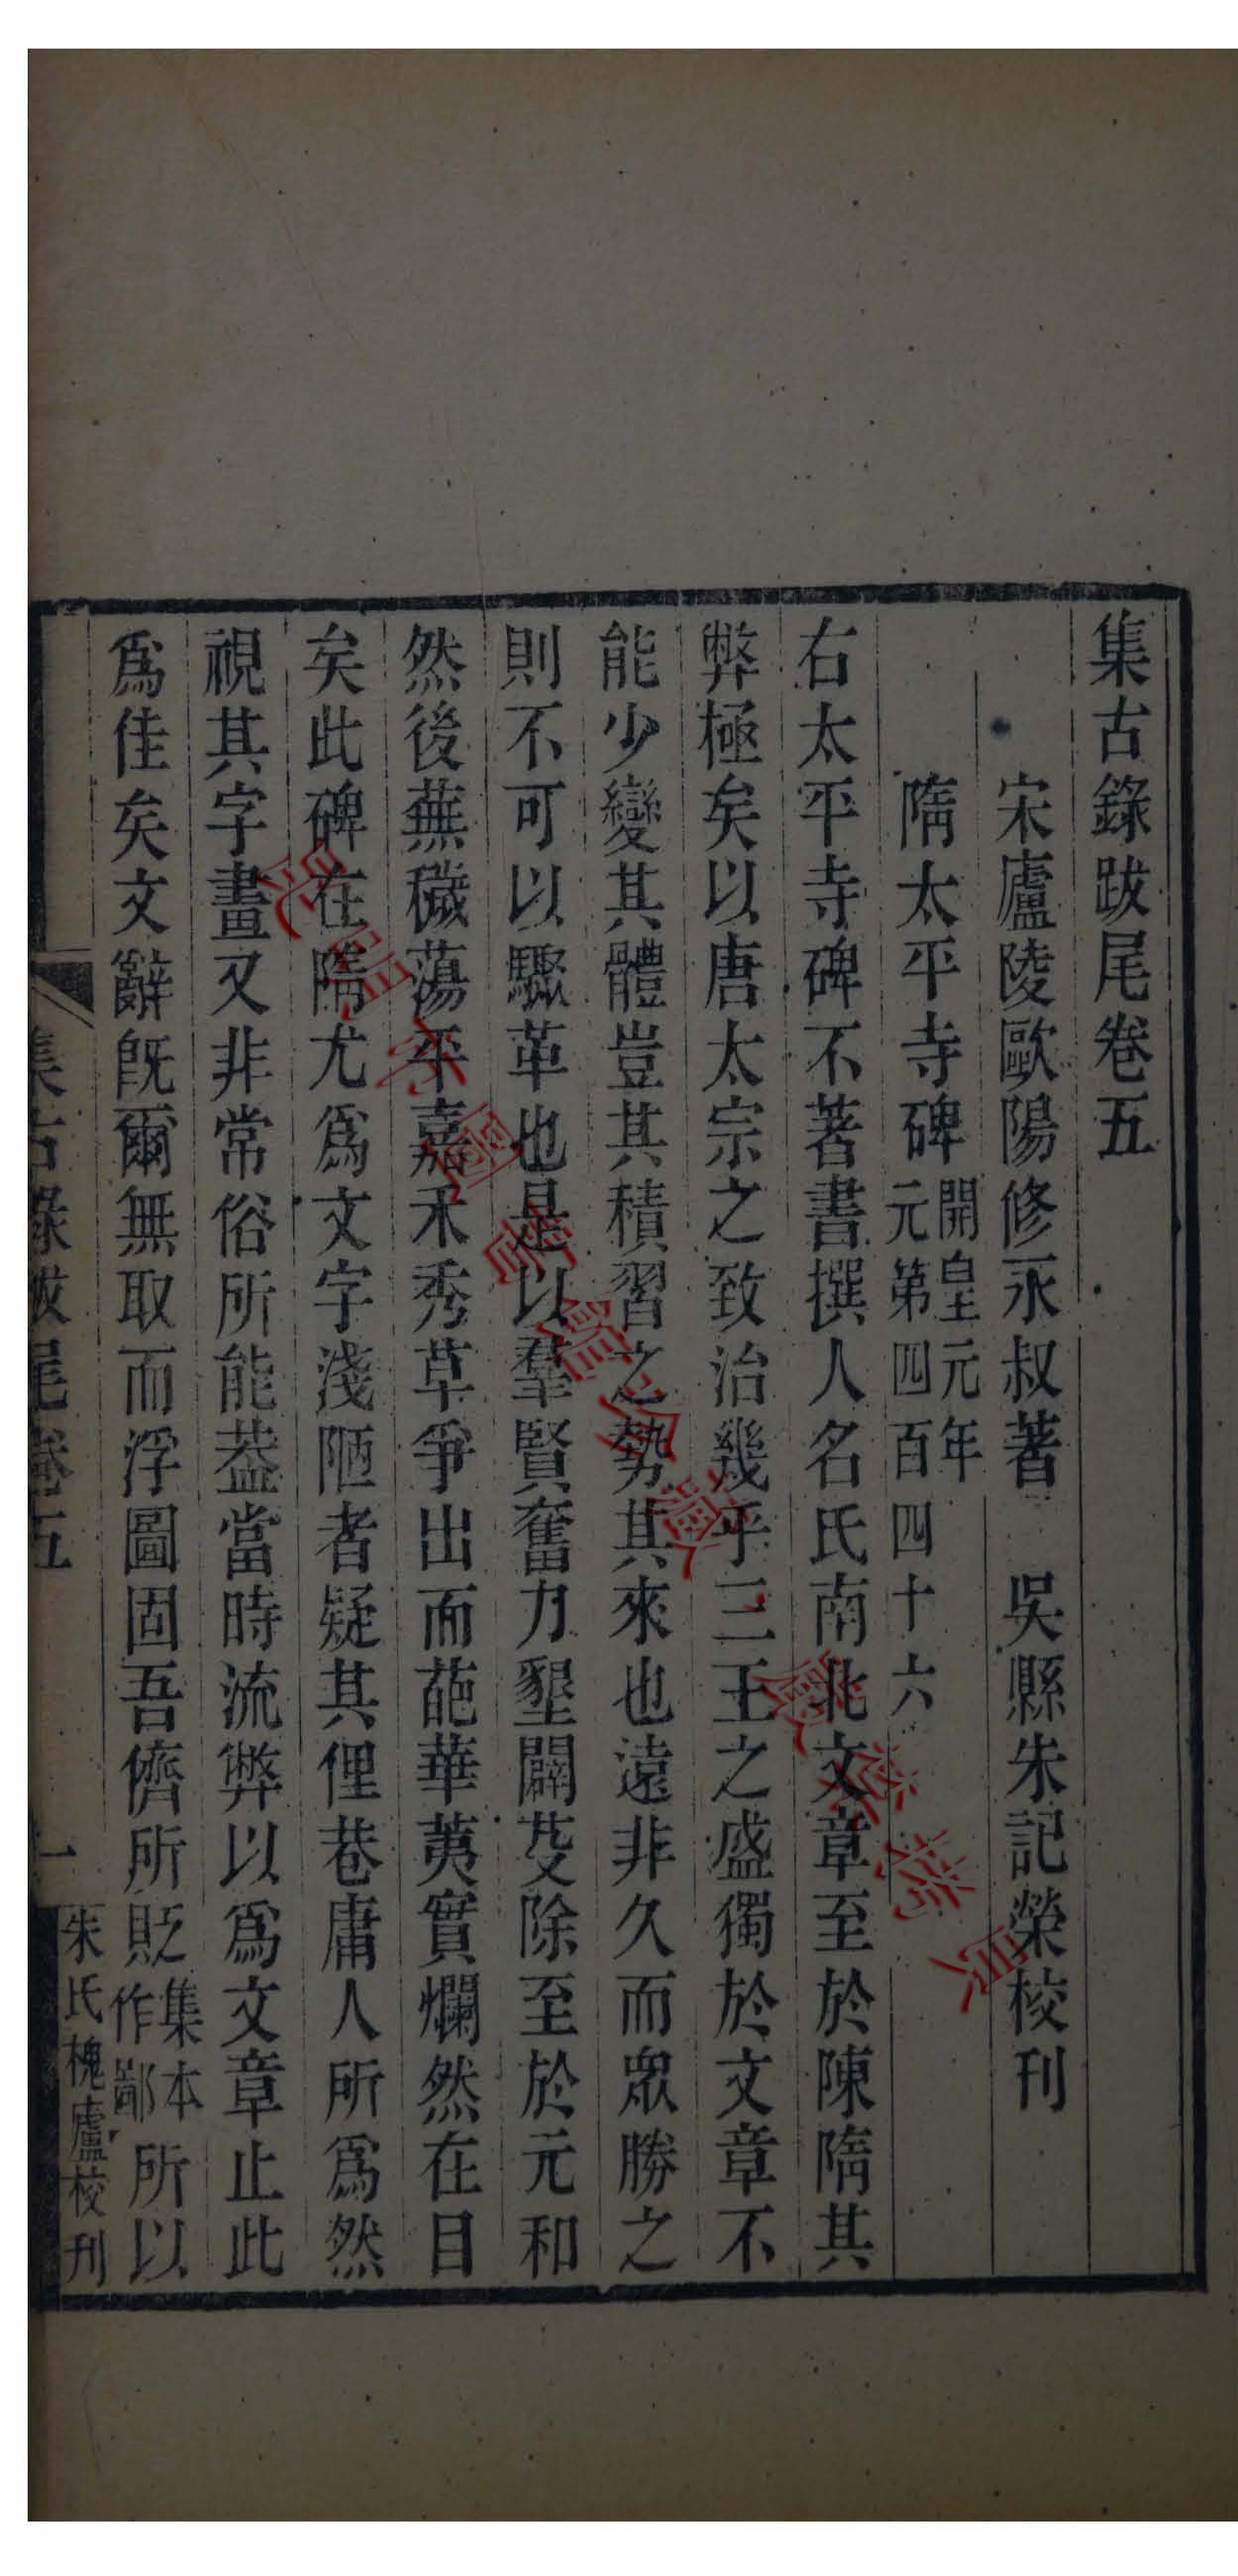 集古錄跋尾卷五
宋廬陵歐陽修永叔著　吳縣朱記榮校刊
隋太平寺碑開皇元年元第四百四十六
右太平寺碑不著書撰人名氏南北文章至於陳隋其
弊極矣以唐太宗之致治幾乎三王之盛獨於文章不
能少變其體豈其積習之勢其來也遠非久而眾勝之
則不可以驟革也是以羣賢奮力墾闢芟除至於元和
然後蕪穢蕩平嘉禾秀草爭出而葩華荑實爛然在目
矣此碑在隋尤為文字淺陋者疑其俚巷庸人所為然
視其字畫又非常俗所能葢當時流弊以為文章止此
為佳矣文辭旣爾無取而浮圖固吾儕所貶集本作鄙所以
集古錄跋尾卷五
一
朱氏槐廬校刊